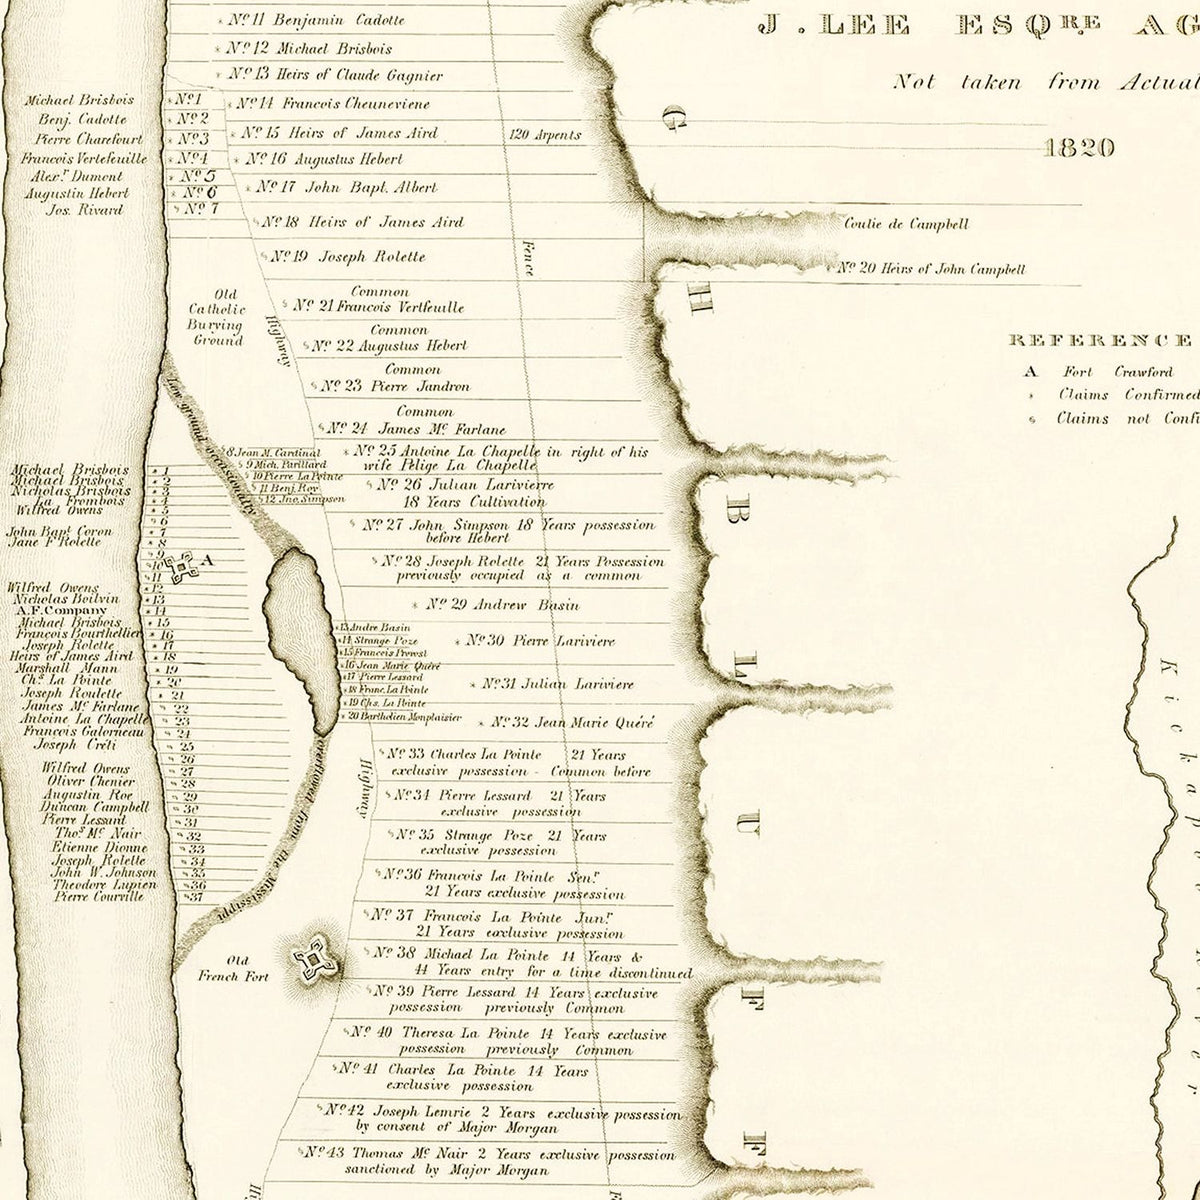 J. LEE ESQRE AG
Not taken from Actual
1820
No 11 Benjamin Cadotte
No 12 Michael Brisbois
No 13 Heirs of Claude Gagnier
No 14 Francois Cheuneviene
No 15 Heirs of James Aird
120 Arpents
No 16 Augustus Hebert
No 17 John Bapt. Albert
No 18 Heirs of James Aird
No 19 Joseph Rolette
Michael Brisbois No 1
Benj. Cadotte No 2
Pierre Charefourt No 3
Francois Vertefeuille No 4
Alexr Dumont No 5
Augustin Hebert No 6
Jos. Rivard No 7
Coulie de Campbell
No 20 Heirs of John Campbell
Fence
Old
Catholic
Burying
Ground
Highway
Common
No 21 Francois Vertfeuille
Common
No 22 Augustus Hebert
Common
No 23 Pierre Jandron
Common
No 24 James Mc Farlane
REFERENCE
A Fort Crawford
* Claims Confirmed
s Claims not Confi
No 25 Antoine La Chapelle in right of his
wife Pelige La Chapelle
No 26 Julian Larivierre
18 Years Cultivation
No 27 John Simpson 18 Years possession
before Hebert
No 28 Joseph Rolette 21 Years Possession
previously occupied as a common
No 29 Andrew Basin
No 30 Pierre Lariviere
No 31 Julian Lariviere
No 32 Jean Marie Quéré
No 33 Charles La Pointe 21 Years
exclusive possession - Common before
No 34 Pierre Lessard 21 Years
exclusive possession
No 35 Strange Poze 21 Years
exclusive possession
No 36 Francois La Pointe Senr
21 Years exclusive possession
No 37 Francois La Pointe Junr
21 Years exclusive possession
No 38 Michael La Pointe 14 Years &
44 Years entry for a time discontinued
No 39 Pierre Lessard 14 Years exclusive
possession previously Common
No 40 Theresa La Pointe 14 Years exclusive
possession previously Common
No 41 Charles La Pointe 14 Years
exclusive possession
No 42 Joseph Lemrie 2 Years exclusive possession
by consent of Major Morgan
No 43 Thomas Mc Nair 2 Years exclusive possession
sanctioned by Major Morgan
Low ground occasionally
overflowed from the Mississippi
8 Jean M. Cardinal
9 Mich. Parillard
10 Pierre La Pointe
11 Benj. Roy
12 Jno. Simpson
13 Andre Basin
14 Strange Poze
15 Francois Provost
16 Jean Marie Quéré
17 Pierre Lessard
18 Franc. La Pointe
19 Chs. La Pointe
20 Barthelien Monplaisier
Michael Brisbois 1
Michael Brisbois 2
Nicholas Brisbois 3
La Frombois 4
Wilfred Owens 5
6
John Bapt Coron 7
Jane F Rolette 8
9
10
11
A
Wilfred Owens 12
Nicholas Boilvin 13
A.F. Company 14
Michael Brisbois 15
Francois Bourthellier 16
Joseph Rolette 17
Heirs of James Aird 18
Marshall Mann 19
Chs La Pointe 20
Joseph Roulette 21
James Mc Farlane 22
Antoine La Chapelle 23
Francois Galorneau 24
Joseph Créti 25
26
Wilfred Owens 27
Oliver Chenier 28
Augustin Roe 29
Duncan Campbell 30
Pierre Lessard 31
Thos Mc Nair 32
Etienne Dionne 33
Joseph Rolette 34
John W. Johnson 35
Theodore Lupien 36
Pierre Courville 37
Highway
Old
French Fort
Hi
F
G
H
B
L
U
F
F
Kickapoo River